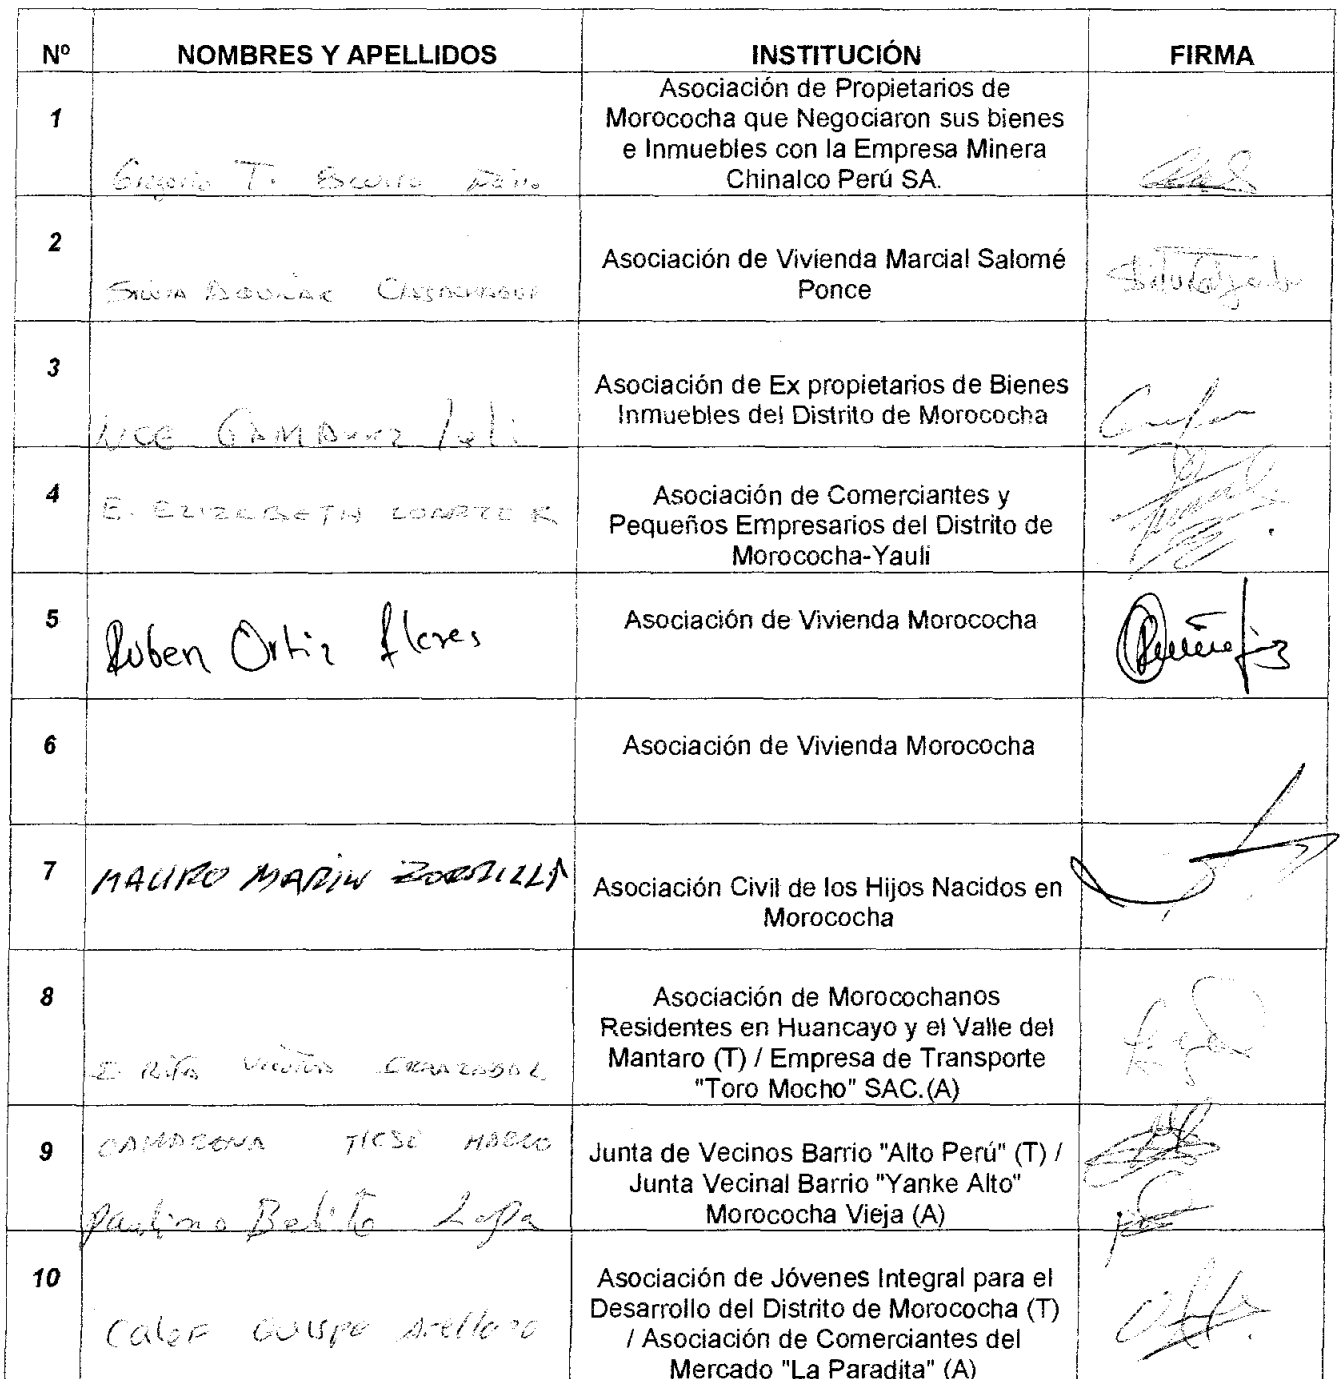 Nº NOMBRES Y APELLIDOS INSTITUCIÓN FIRMA
1
Asociación de Propietarios de
Morococha que Negociaron sus bienes
e Inmuebles con la Empresa Minera
Chinalco Perú SA.
Gregorio T.
2
Asociación de Vivienda Marcial Salomé
Ponce
SILVIA AGUILAR
3
Asociación de Ex propietarios de Bienes
Inmuebles del Distrito de Morococha
4
E. ELIZABETH
Asociación de Comerciantes y
Pequeños Empresarios del Distrito de
Morococha-Yauli
5
Ruben Ortiz flores
Asociación de Vivienda Morococha
6
Asociación de Vivienda Morococha
7
MAURO MARIN ZORRILLA
Asociación Civil de los Hijos Nacidos en
Morococha
8
Asociación de Morocochanos
Residentes en Huancayo y el Valle del
Mantaro (T) / Empresa de Transporte
"Toro Mocho" SAC.(A)
E. RITA
9
CAMARENA TICSE MARCO
Paulino
Junta de Vecinos Barrio "Alto Perú" (T) /
Junta Vecinal Barrio "Yanke Alto"
Morococha Vieja (A)
10
Asociación de Jóvenes Integral para el
Desarrollo del Distrito de Morococha (T)
/ Asociación de Comerciantes del
Mercado "La Paradita" (A)
Quispe Arellano